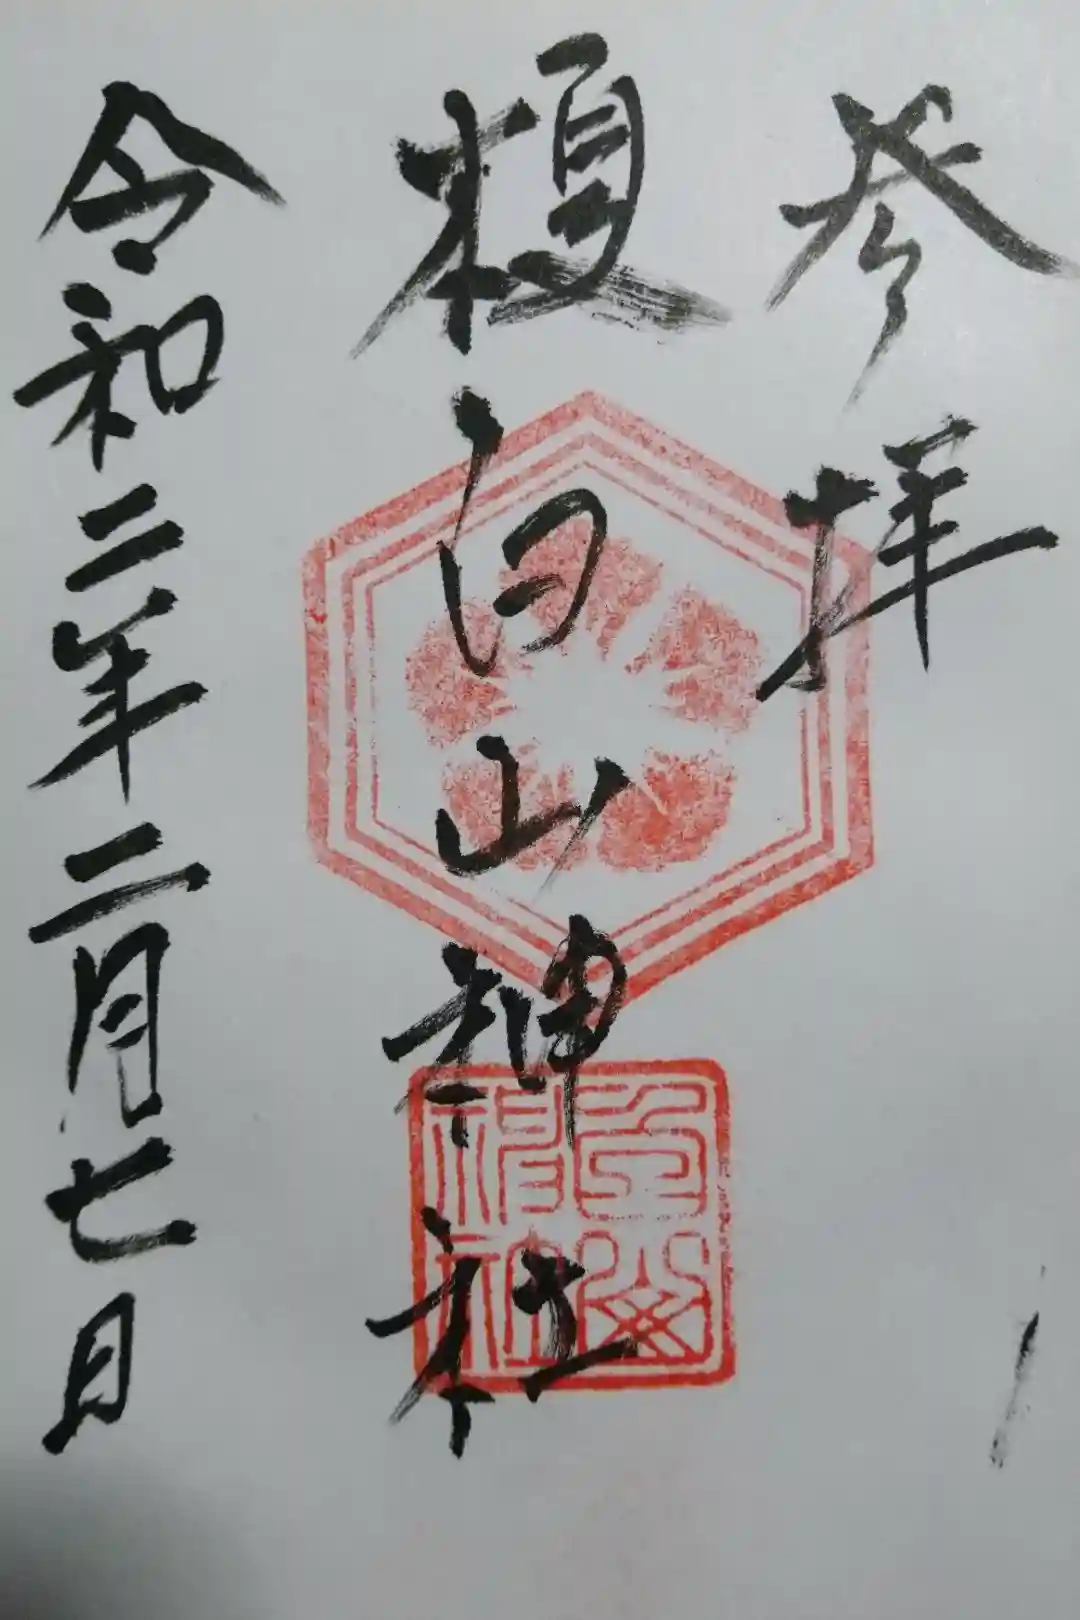 参拝
榎白山神社
令和二年二月七日